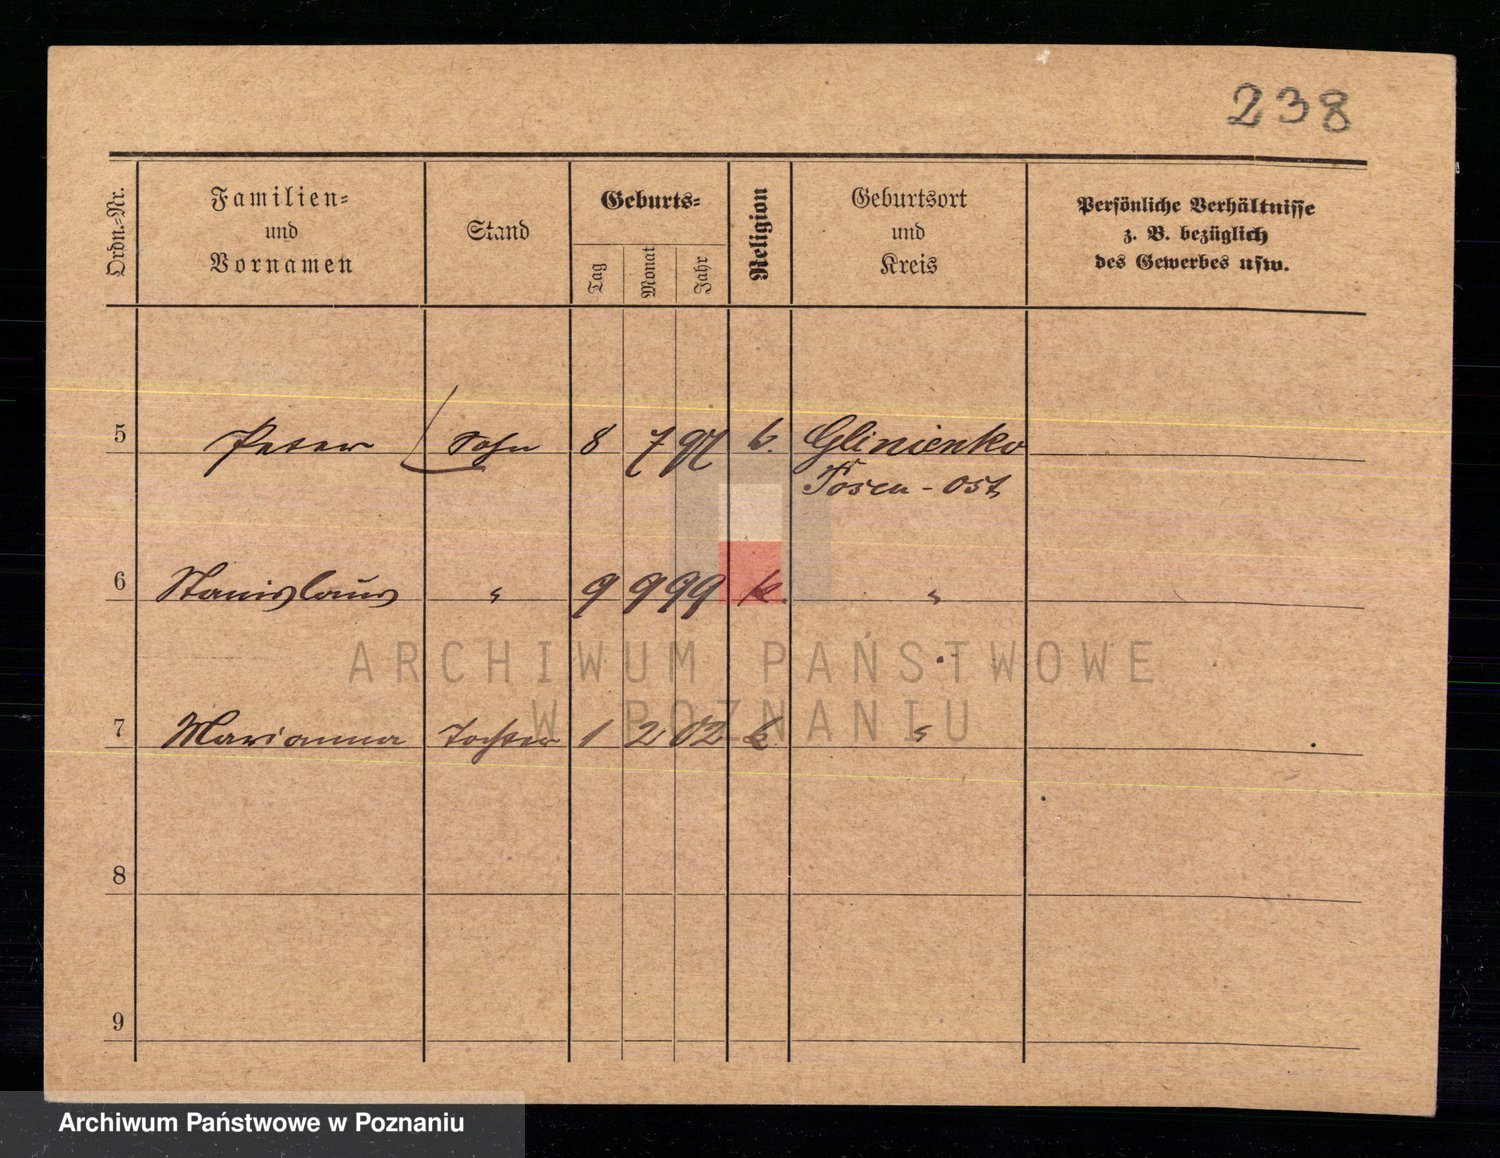 238
Ordn.-Nr.
Familien-
und
Vornamen
Stand
Geburts-
Tag
Monat
Jahr
Religion
Geburtsort
und
Kreis
Persönliche Verhältnisse
z. B. bezüglich
des Gewerbes usw.
5 Peter Sohn 8 7 97 k. Glinienko
Posen - Ost
6 Stanislaus " 9 9 99 k. "
ARCHIWUM PAŃSTWOWE
W POZNANIU
7 Marianna Tochter 1 2 02 k. "
8
9
Archiwum Państwowe w Poznaniu